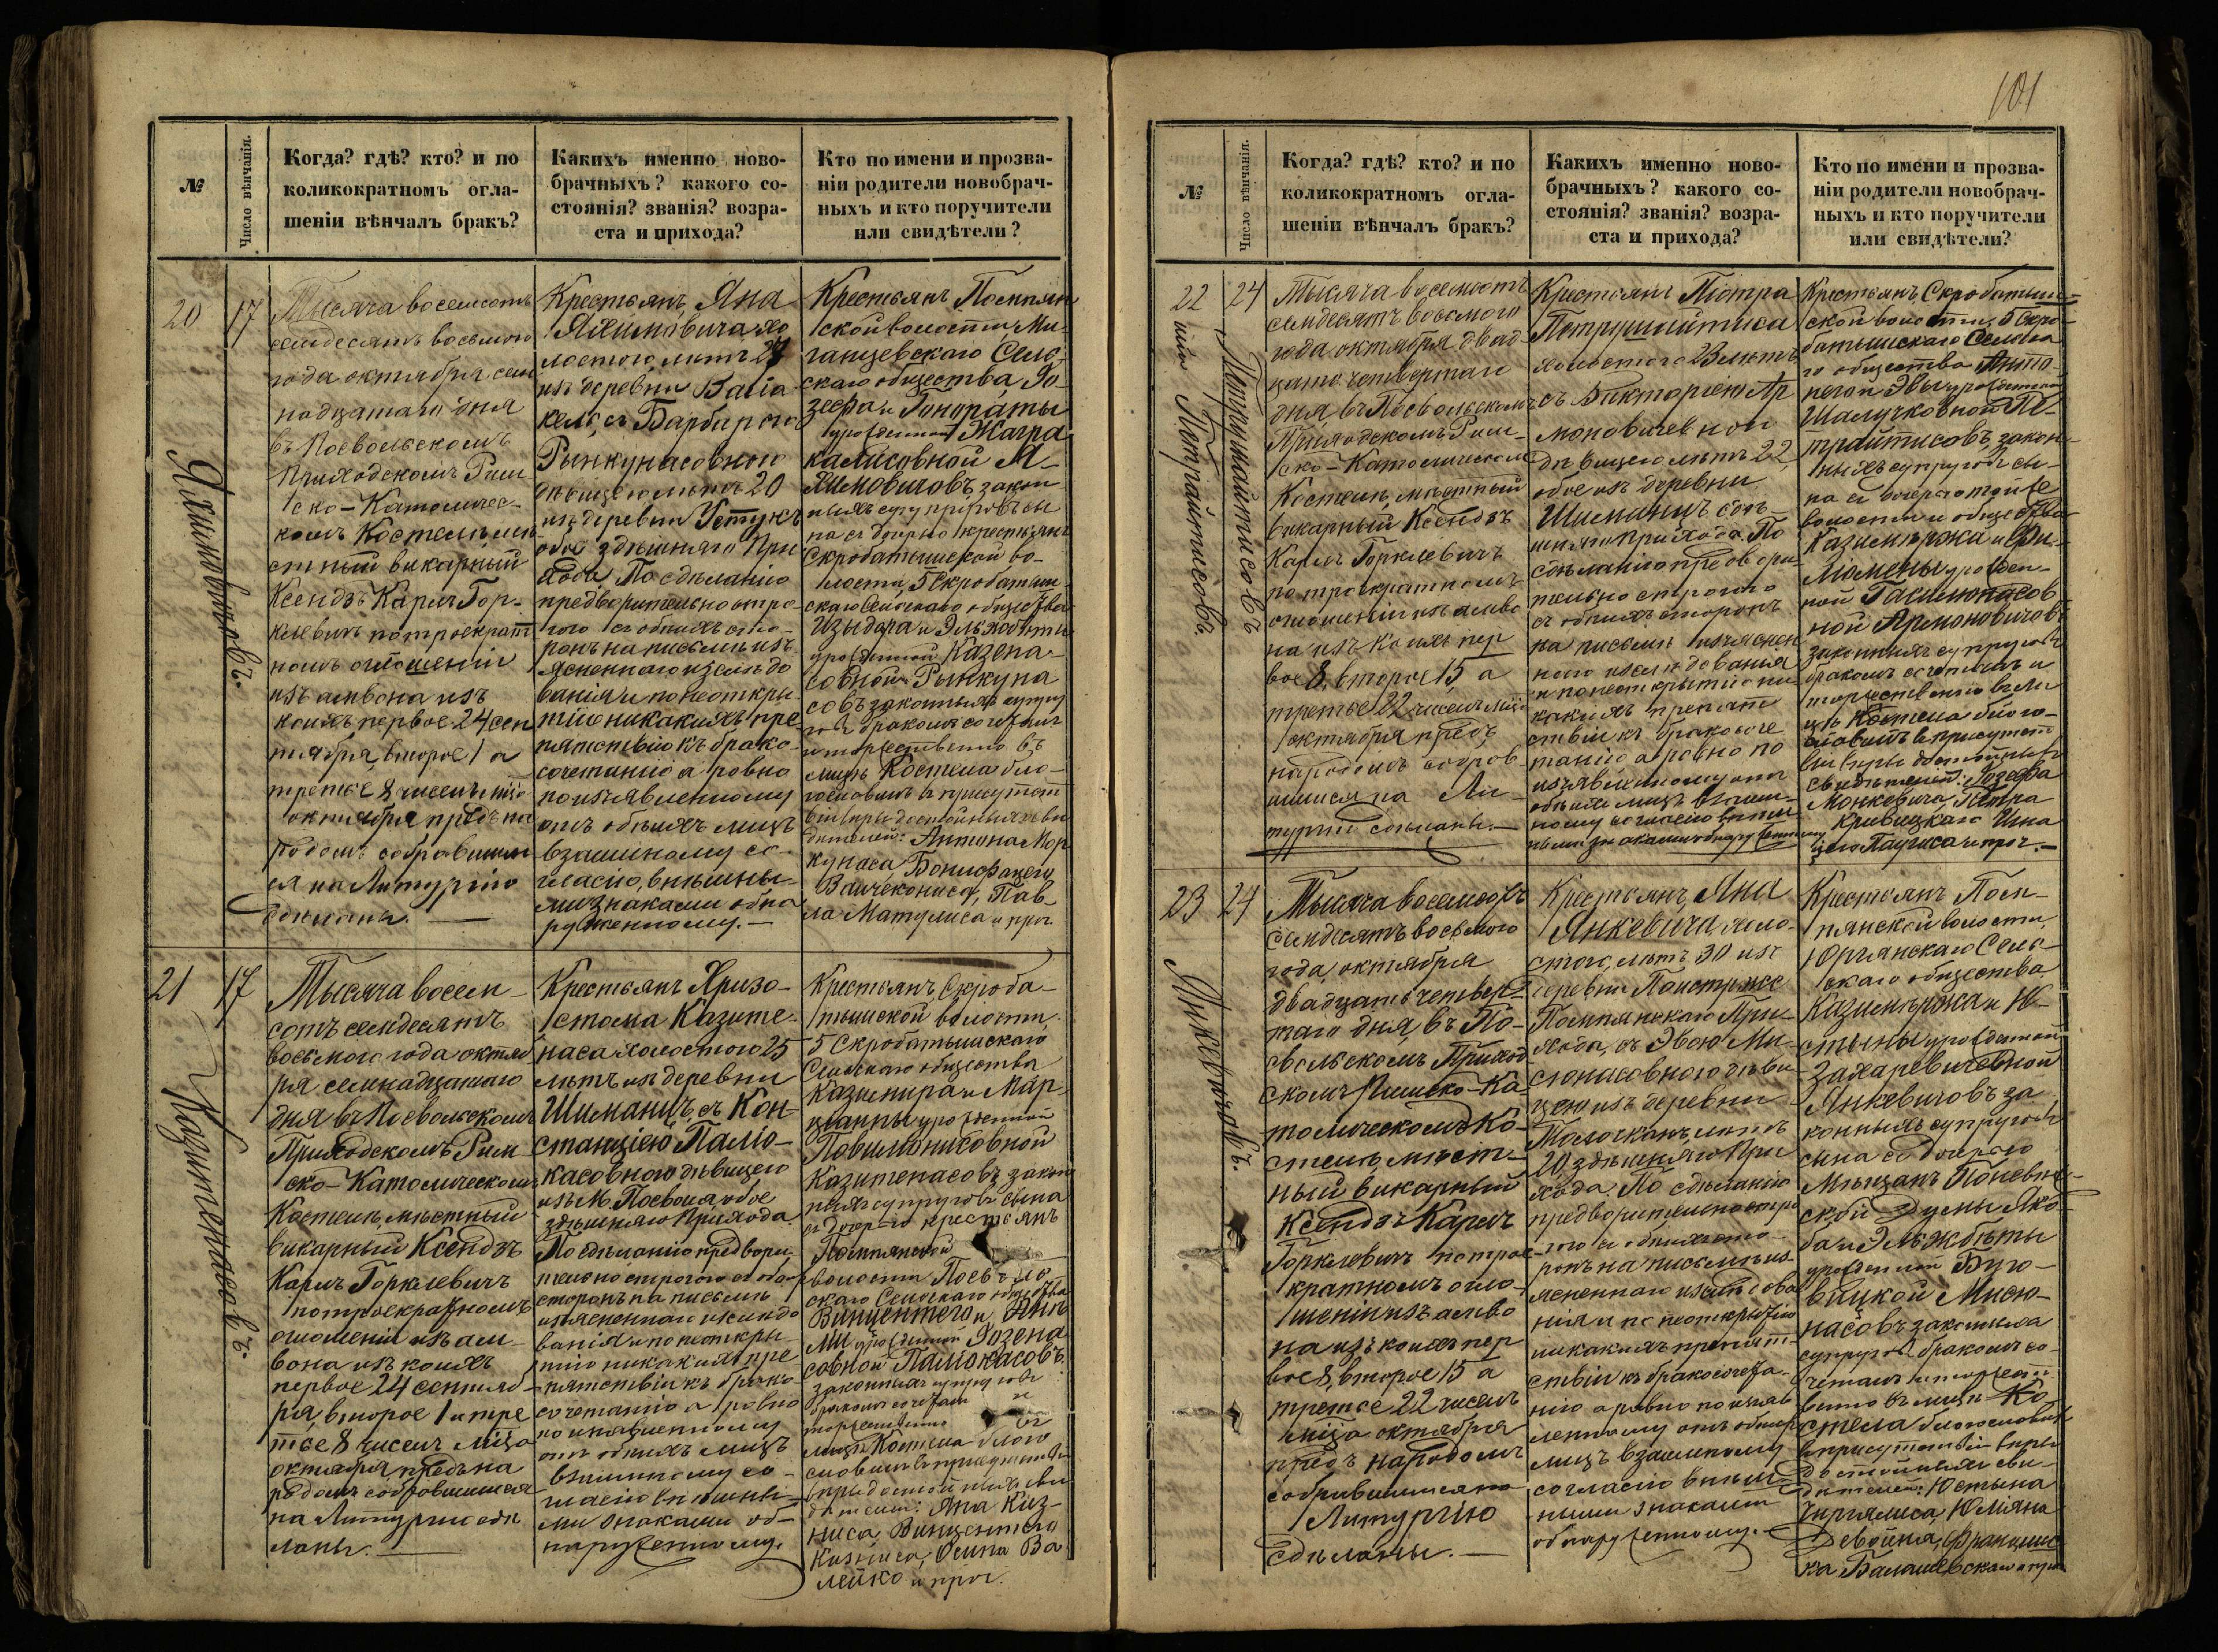 101
№
Число вѣнчанія.
Когда? гдѣ? кто? и по
коликократномъ огла-
шеніи вѣнчалъ бракъ?
Какихъ именно ново-
брачныхъ? какого со-
стоянія? званія? возра-
ста и прихода?
Кто по имени и прозва-
ніи родители новобрач-
ныхъ и кто поручители
или свидѣтели?
20
17
Яхимовичовъ.
Тысяча восемсотъ
семдесятъ восьмого
года октября сем
надцатаго дня
въ Посвольскомъ
Приходскомъ Рим
ско-Католичес-
комъ Костелѣ мѣ
стный викарный
Ксендзъ Карлъ Гор-
келевичъ по троекрат
номъ оглошеніи
изъ амвона изъ
коихъ первое 24 сен
тября, второе 1 а
третье 8 чиселъ мѣца
октября, предъ на
родомъ собравшим
ся на Литургію
сдѣланы.
Крестьянъ, Яна
Яхимовича хо
лостого, лѣтъ 27
изъ деревни
съ Барбарою
Рынкунасовною
дѣвицею лѣтъ 20
изъ деревни Устукъ
обое здѣшняго При
хода. По сдѣланію
предворительно стро
гого съ обоихъ сто-
ронъ на письмѣ изъ
ясненнаго изслѣдо
ванія и по неоткры
тію никакихъ пре
пятствію къ брако-
сочетанію а ровно
по изъявленному
отъ обѣихъ лицъ
взаимному со-
гласію, внѣшны-
ми знаками обна
руженному.
Крестьянъ Помпян
ской волости, Ми-
ганцевскаго Сель-
скаго общества, Іо-
зефа и Гонораты
урожденной Жагра-
калисовной
Яхимовичовъ закон
ныхъ супруговъ сы
на съ дочерью крестьянъ
Скробатышской во-
лости, 5 Скробатыш-
скаго Сельскаго общества
Изыдора и Эльжбеты
урожденной Казена-
совной Рынкуна
совъ законныхъ супру
говъ бракомъ сочеталъ
и торжественно въ
лицѣ Костела бло-
гословилъ въ присутст
віи
дѣтелей: Антона Мор
кунаса, Бонифацего
Вайчекониса, Пав-
ла Матулиса и проч.
21
17
Казитенасовъ.
Тысяча восем-
сотъ семдесятъ
восьмого года октяб
ря семнадцатаго
дня въ Посвольскомъ
Приходскомъ Рим
ско-Католическомъ
Костелѣ, мѣстный
викарный Ксендзъ
Карлъ Горкелевичъ
по троекратномъ
оглошеніи изъ ам-
вона изъ коихъ
первое 24 сентяб-
ря, второе 1 и тре
тье 8 чиселъ мѣца
октября, предъ на
родомъ собравшимся
на Литургію сдѣ
ланы.
Крестьянъ Хризо-
стома Казите-
наса холостого 25
лѣтъ изъ деревни
Шиманцъ съ Кон-
станцією Паліо-
касовною дѣвицею
изъ М. Посволя, обое
здѣшняго Прихода.
По сдѣланію предвори-
тельно строгого съ обоихъ
сторонъ на письмѣ
изъясненнаго изслѣдо
ванія и по неоткры
тію никакихъ пре
пятствіи къ брако-
сочетанію а ровно
по изъявленному
отъ обоихъ лицъ
взаимному со-
гласію внѣшны-
ми знаками об-
наруженному.
Крестьянъ, Скроба-
тышской волости,
5 Скробатышскаго
Сельскаго общества
Казимира и Мар-
цыанны урожденной
Повилонисовной
Казитенасовъ закон
ныхъ супруговъ сына
съ дочерью крестьянъ
Помпянской
волости
скаго Сельскаго общества
Винцентего и
урожденной Іозена-
совной Паліокасовъ
законныхъ супруговъ
бракомъ сочеталъ и
торжественно въ
лицѣ Костела благо
словилъ въ присутствіи
дѣтелей: Яна Киз-
ниса, Винцентего
Кизниса, Осипа Ва
лейко и проч.
№
Число вѣнчанія.
Когда? гдѣ? кто? и по
коликократномъ огла-
шеніи вѣнчалъ бракъ?
Какихъ именно ново-
брачныхъ? какого со-
стоянія? званія? возра-
ста и прихода?
Кто по имени и прозва-
ніи родители новобрач-
ныхъ и кто поручители
или свидѣтели?
22
24
Петрушайтисовъ
или Петрайтисовъ.
Тысяча восемсотъ
семдесятъ восьмого
года октября двад
цато четвертаго
дня, въ Посвольскомъ
Приходскомъ Рим-
ско-Католическомъ
Костелѣ, мѣстный
викарный Ксендзъ
Карлъ Горкелевичъ
по троекратномъ
оглошеніи изъ амво
на изъ коихъ пер
вое 8, второе 15, а
третье 22 чиселъ мѣца
октября предъ
народомъ собрав-
шимся на Ли-
тургію сдѣланы.
Крестьянъ Піотра
Петрушайтиса
холостого 23 лѣтъ
съ Викторією Яр
моновичевной
дѣвицею лѣтъ 22,
обое изъ деревни
Шиманцъ здѣ-
шняго Прихода. По
сдѣланію предвори-
тельно строгого
съ обоихъ сторонъ
на письмѣ изъяснен
ного изслѣдованія
и по неоткрытію ни
какихъ препят
ствіи къ бракосоче
танію а ровно по
изъявленному отъ
обѣихъ лицъ взаим-
ному согласію внѣш-
ными знаками обнаруженному
Крестьянъ, Скробатыш-
ской волости, 5 Скро-
батышскаго Сельска
го общества Анто-
негой Эвы урожденной
Шалучковной Пе-
трайтисовъ, закон-
ныхъ супруговъ сы-
на съ дочерью той же
волости и общества
Казимѣржа и Фи-
ломены урожден-
ной
ной Ярмоновичовъ
законныхъ супруговъ
бракомъ сочеталъ и
торжественно въ ли
цѣ Костела благо-
словилъ въ присутст
віи
свидѣтелей: Іозефа
Монкевича, Петра
Кривицкаго Игна
цего Паугиса и проч.
23
24
Янкевичовъ.
Тысяча восемсотъ
семдесятъ восьмого
года, октября
двадцать четвер-
таго дня, въ По-
свольскомъ Приход
скомъ Римско-Ка-
толическомъ Ко-
стелѣ, мѣст-
ный викарный
Ксендзъ Карлъ
Горкелевичъ по трое-
кратномъ огло-
шеніи изъ амво
на изъ коихъ пер
вое 8, второе 15 а
третье 22 чиселъ
мѣца октября
предъ народомъ
собравшимся на
Литургію
сдѣланы.
Крестьянъ, Яна
Янкевича холо-
стого, лѣтъ 30 изъ
деревни Поистрже
Помпянскаго При-
хода, съ Эвою Ми-
сюнасовною дѣви
цею изъ деревни
Толочканъ, лѣтъ
20, здѣшняго При
хода. По сдѣланію
предворительно стро
гого съ обоихъ сто-
ронъ на письмѣ изъ
ясненнаго изслѣдова
нія и по неоткрытію
никакихъ препят-
ствіи къ бракосочета-
нію а равно по изъяв
ленному отъ обоихъ
лицъ взаимному
согласію внѣш-
ними знаками
обнаруженному.
Крестьянъ Помп-
янской волости,
Юргянскаго Сель-
скаго общества
Казимѣржа и Ю-
стыны урожденной
Захаревичевной
Янкевичовъ за
конныхъ супруговъ
сына съ дочерью
Мѣщанъ Поневѣж-
ской Думы Яко
ба и Эльжбѣты
урожденной Буго-
вицкой Мисю-
насовъ законныхъ
супруговъ бракомъ со-
четалъ и торжест
венно въ лицѣ Ко-
стела благословилъ
въ присутствіи вѣры
достойныхъ сви-
дѣтелей: Юстына
Чиргялиса, Юліяна
Девойна, Францис
ка Балашевскаго и проч